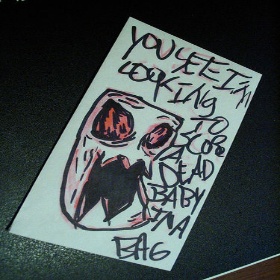 YOU SEE I'M
LOOKING
TO
SCORE
A
DEAD
BABY
IN A
BAG